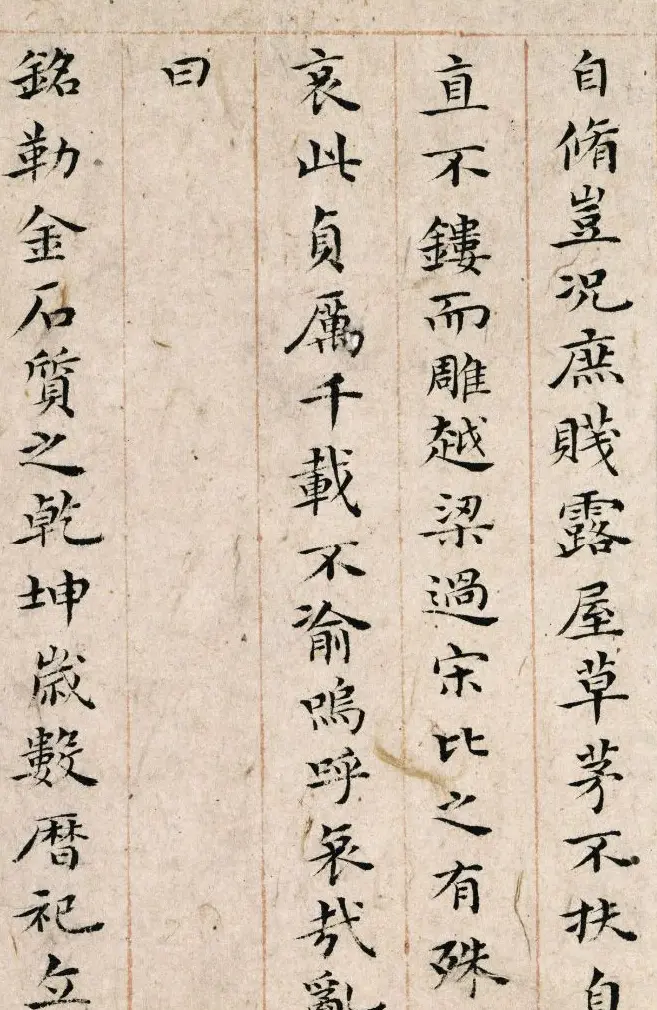 自脩豈况庶賎露屋草茅不扶自
直不鏤而雕越梁過宋比之有殊
哀此貞厲千載不渝嗚呼哀哉亂
曰
銘勒金石質之乾坤歳數曆祀立